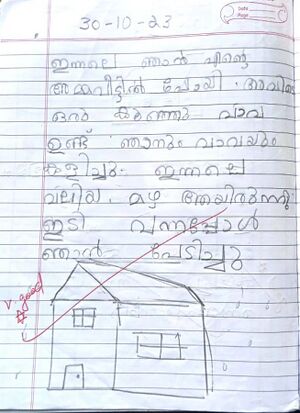 30-10-23
ഇന്നലെ ഞാൻ എന്റെ
അമ്മവീട്ടിൽ പോയി. അവിടെ
ഒരു കുഞ്ഞു വാവ
ഉണ്ട് ഞാനും വാവയും
കളിച്ചു. ഇന്നലെ
വലിയ മഴ ആയിരുന്നു
ഇടി വന്നപ്പോൾ
ഞാൻ പേടിച്ചു
v. good